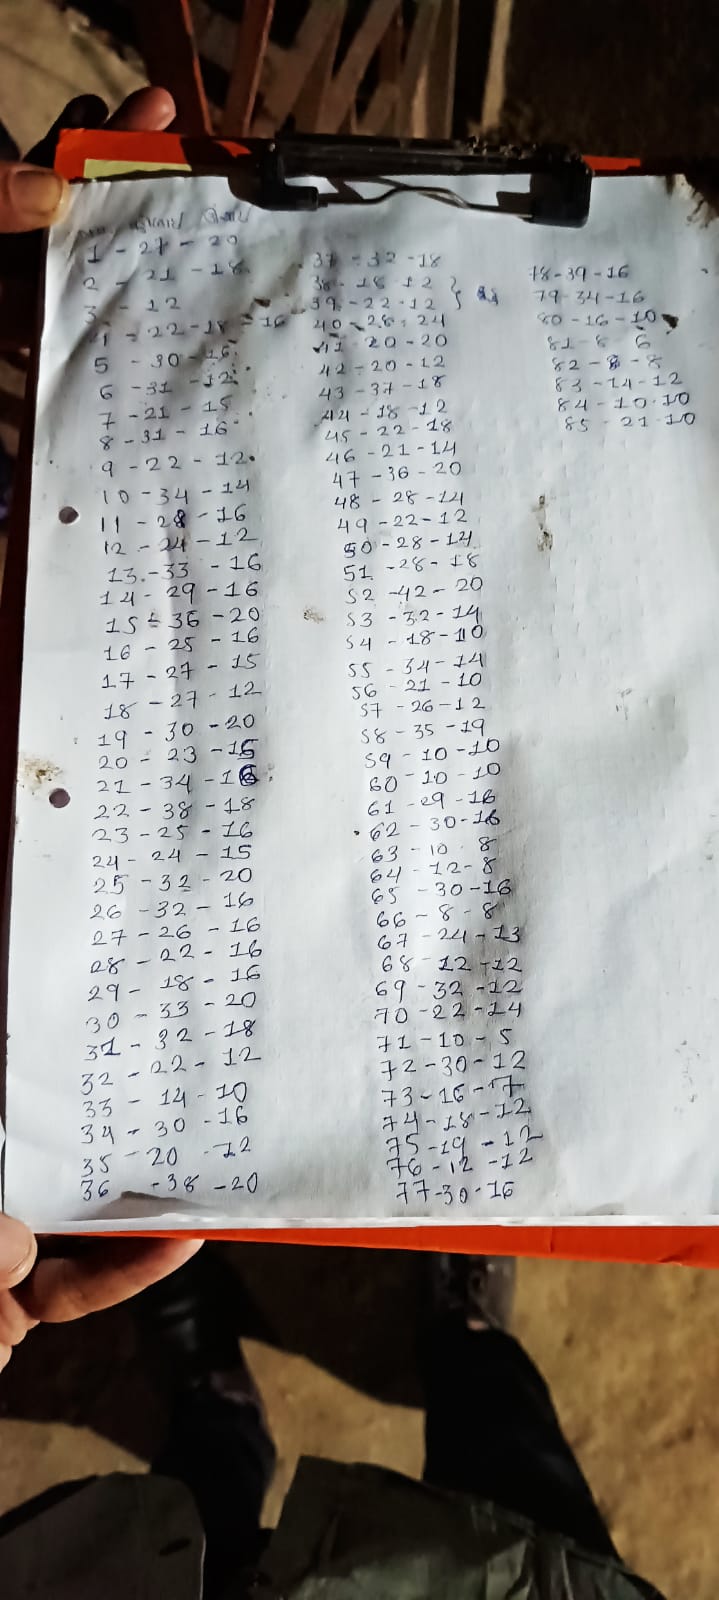 1 - 27 - 20
2 - 21 - 18
3 - 12
4 - 22 - 18 = 16
5 - 30 - 16
6 - 31 - 12
7 - 21 - 15
8 - 31 - 16
9 - 22 - 12
10 - 34 - 14
11 - 28 - 16
12 - 24 - 12
13 - 33 - 16
14 - 29 - 16
15 - 36 - 20
16 - 25 - 16
17 - 27 - 15
18 - 27 - 12
19 - 30 - 20
20 - 23 - 15
21 - 34 - 16
22 - 38 - 18
23 - 25 - 16
24 - 24 - 15
25 - 32 - 20
26 - 32 - 16
27 - 26 - 16
28 - 22 - 16
29 - 18 - 16
30 - 33 - 20
31 - 32 - 18
32 - 22 - 12
33 - 14 - 10
34 - 30 - 16
35 - 20 - 12
36 - 38 - 20
37 - 32 - 18
38 - 18 - 12
39 - 22 - 12
40 - 28 - 24
41 - 20 - 20
42 - 20 - 12
43 - 37 - 18
44 - 18 - 12
45 - 22 - 18
46 - 21 - 14
47 - 36 - 20
48 - 28 - 14
49 - 22 - 12
50 - 28 - 14
51 - 28 - 18
52 - 42 - 20
53 - 32 - 14
54 - 18 - 10
55 - 34 - 14
56 - 21 - 10
57 - 26 - 12
58 - 35 - 19
59 - 10 - 10
60 - 10 - 10
61 - 29 - 16
62 - 30 - 16
63 - 10 - 8
64 - 12 - 8
65 - 30 - 16
66 - 8 - 8
67 - 24 - 13
68 - 12 - 12
69 - 32 - 12
70 - 22 - 14
71 - 10 - 5
72 - 30 - 12
73 - 16 - 7
74 - 18 - 12
75 - 19 - 12
76 - 12 - 12
77 - 30 - 16
78 - 39 - 16
79 - 34 - 16
80 - 16 - 10
81 - 8 6
82 - 8 - 8
83 - 14 - 12
84 - 10 - 10
85 - 21 - 10